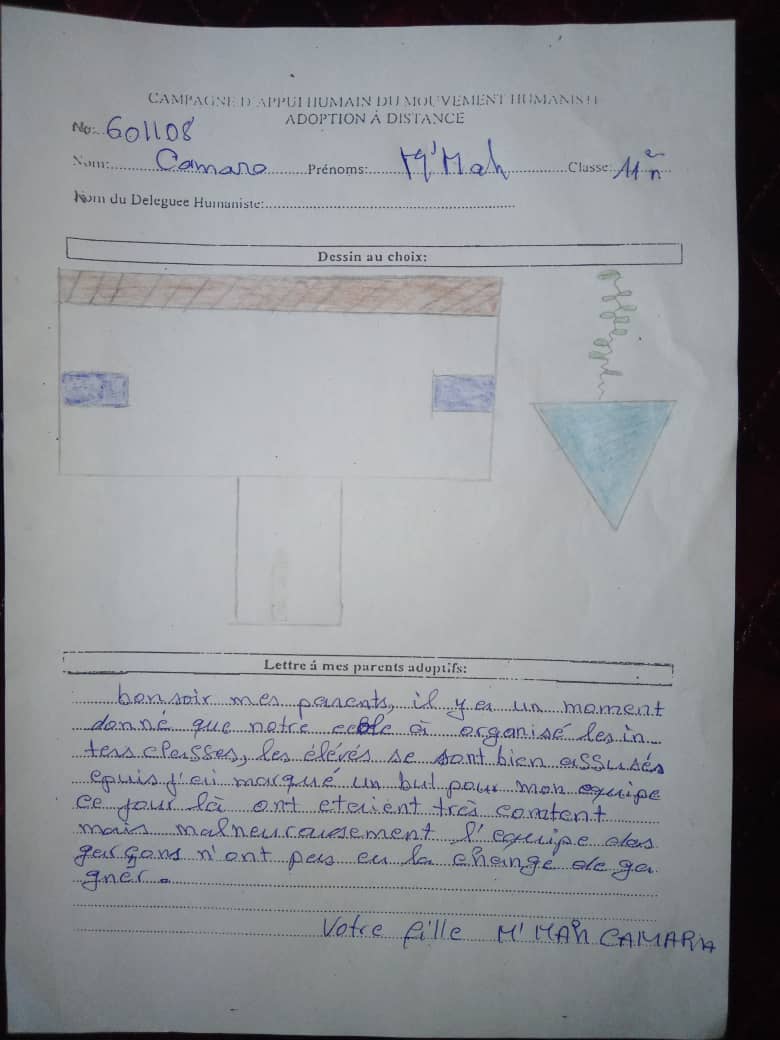 CAMPAGNE D'APPUI HUMAIN DU MOUVEMENT HUMANISTE
ADOPTION Á DISTANCE
No:..601108
Nom:......Camara......Prénoms:......M'Mah......Classe:..11è n
Nom du Deleguee Humaniste:..................................................
Dessin au choix:
Lettre á mes parents adoptifs:
bonsoir mes parents, il y a un moment
donné que notre ecole à organisé les in
tess classes, les élévés se sont bien assusés
epuis j'ai marqué un but pour mon equipe
ce jour là ont etaient très content
mais malheureusement l'equipe des
garçons n'ont pas eu la change de ga
gner.
Votre fille M'MAH CAMARA